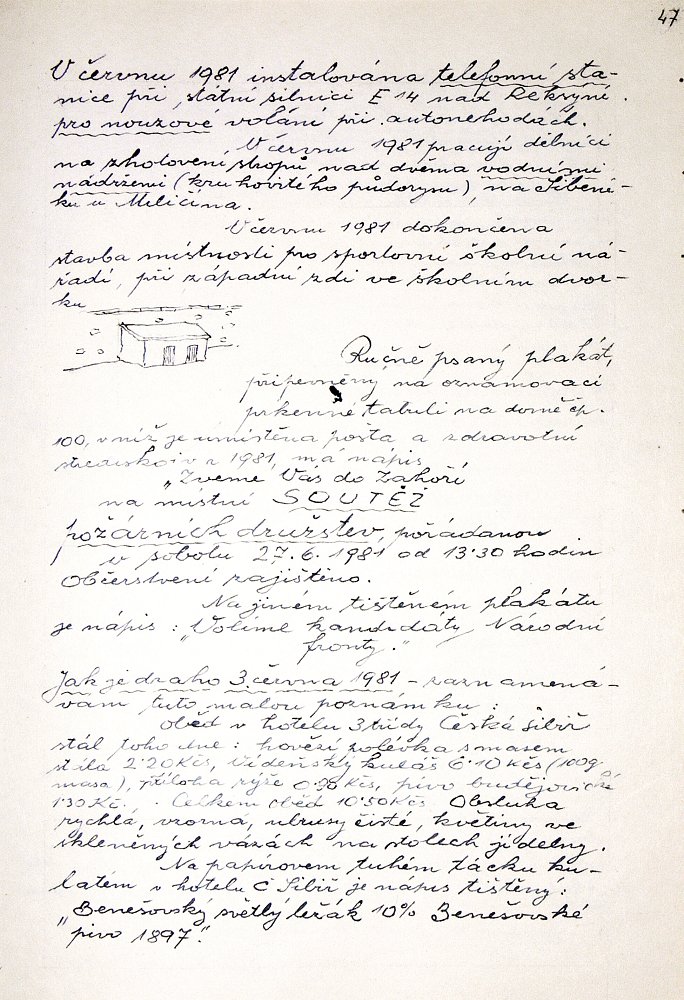 47
V červnu 1981 instalována telefonní sta-
nice při státní silnici E 14 nad Reksýně.
pro nouzové volání při autonehodách.
V červnu 1981 pracují dělníci
na zhotovení stropů nad dvěma vodními
nádržemi (kruhovitého půdorysu), na Šibení-
ku u Miličína.
V červnu 1981 dokončena
stavba místnosti pro sportovní školní ná-
řadí, při západní zdi ve školním dvor-
ku
Ručně psaný plakát,
připevněný na oznamovací
prkenné tabuli na domě čp.
100, v níž je umístěna pošta a zdravotní
středisko v r 1981, má nápis
„Zveme Vás do Záhoří
na místní SOUTĚŽ
požárních družstev, pořádanou
v sobotu 27.6.1981 od 13.30 hodin
Občerstvení zajištěno.
Na jiném tištěném plakátu
je nápis: „Volíme kandidáty Národní
fronty."
Jak je draho 3. června 1981 - zazna­mená-
vám tuto malou poznámku:
oběd v hotelu 3 třídy Česká Sibiř
stál toho dne: hovězí polévka s masem
stála 2.20 Kčs, Vídeňský guláš 6.10 Kčs (100g
masa), příloha rýže 0.90 Kčs, pivo budějovické
1.30 Kč. Celkem oběd 10.50 Kčs. Obsluha
rychlá, vzorná, ubrusy čisté, květiny ve
skleněných vázách na stolech jídelny.
Na papírovem tuhém tácku ku-
latém v hotelu Č Sibiř je nápis tištěný:
„Benešovský světlý ležák 10% Benešovské
pivo 1897".